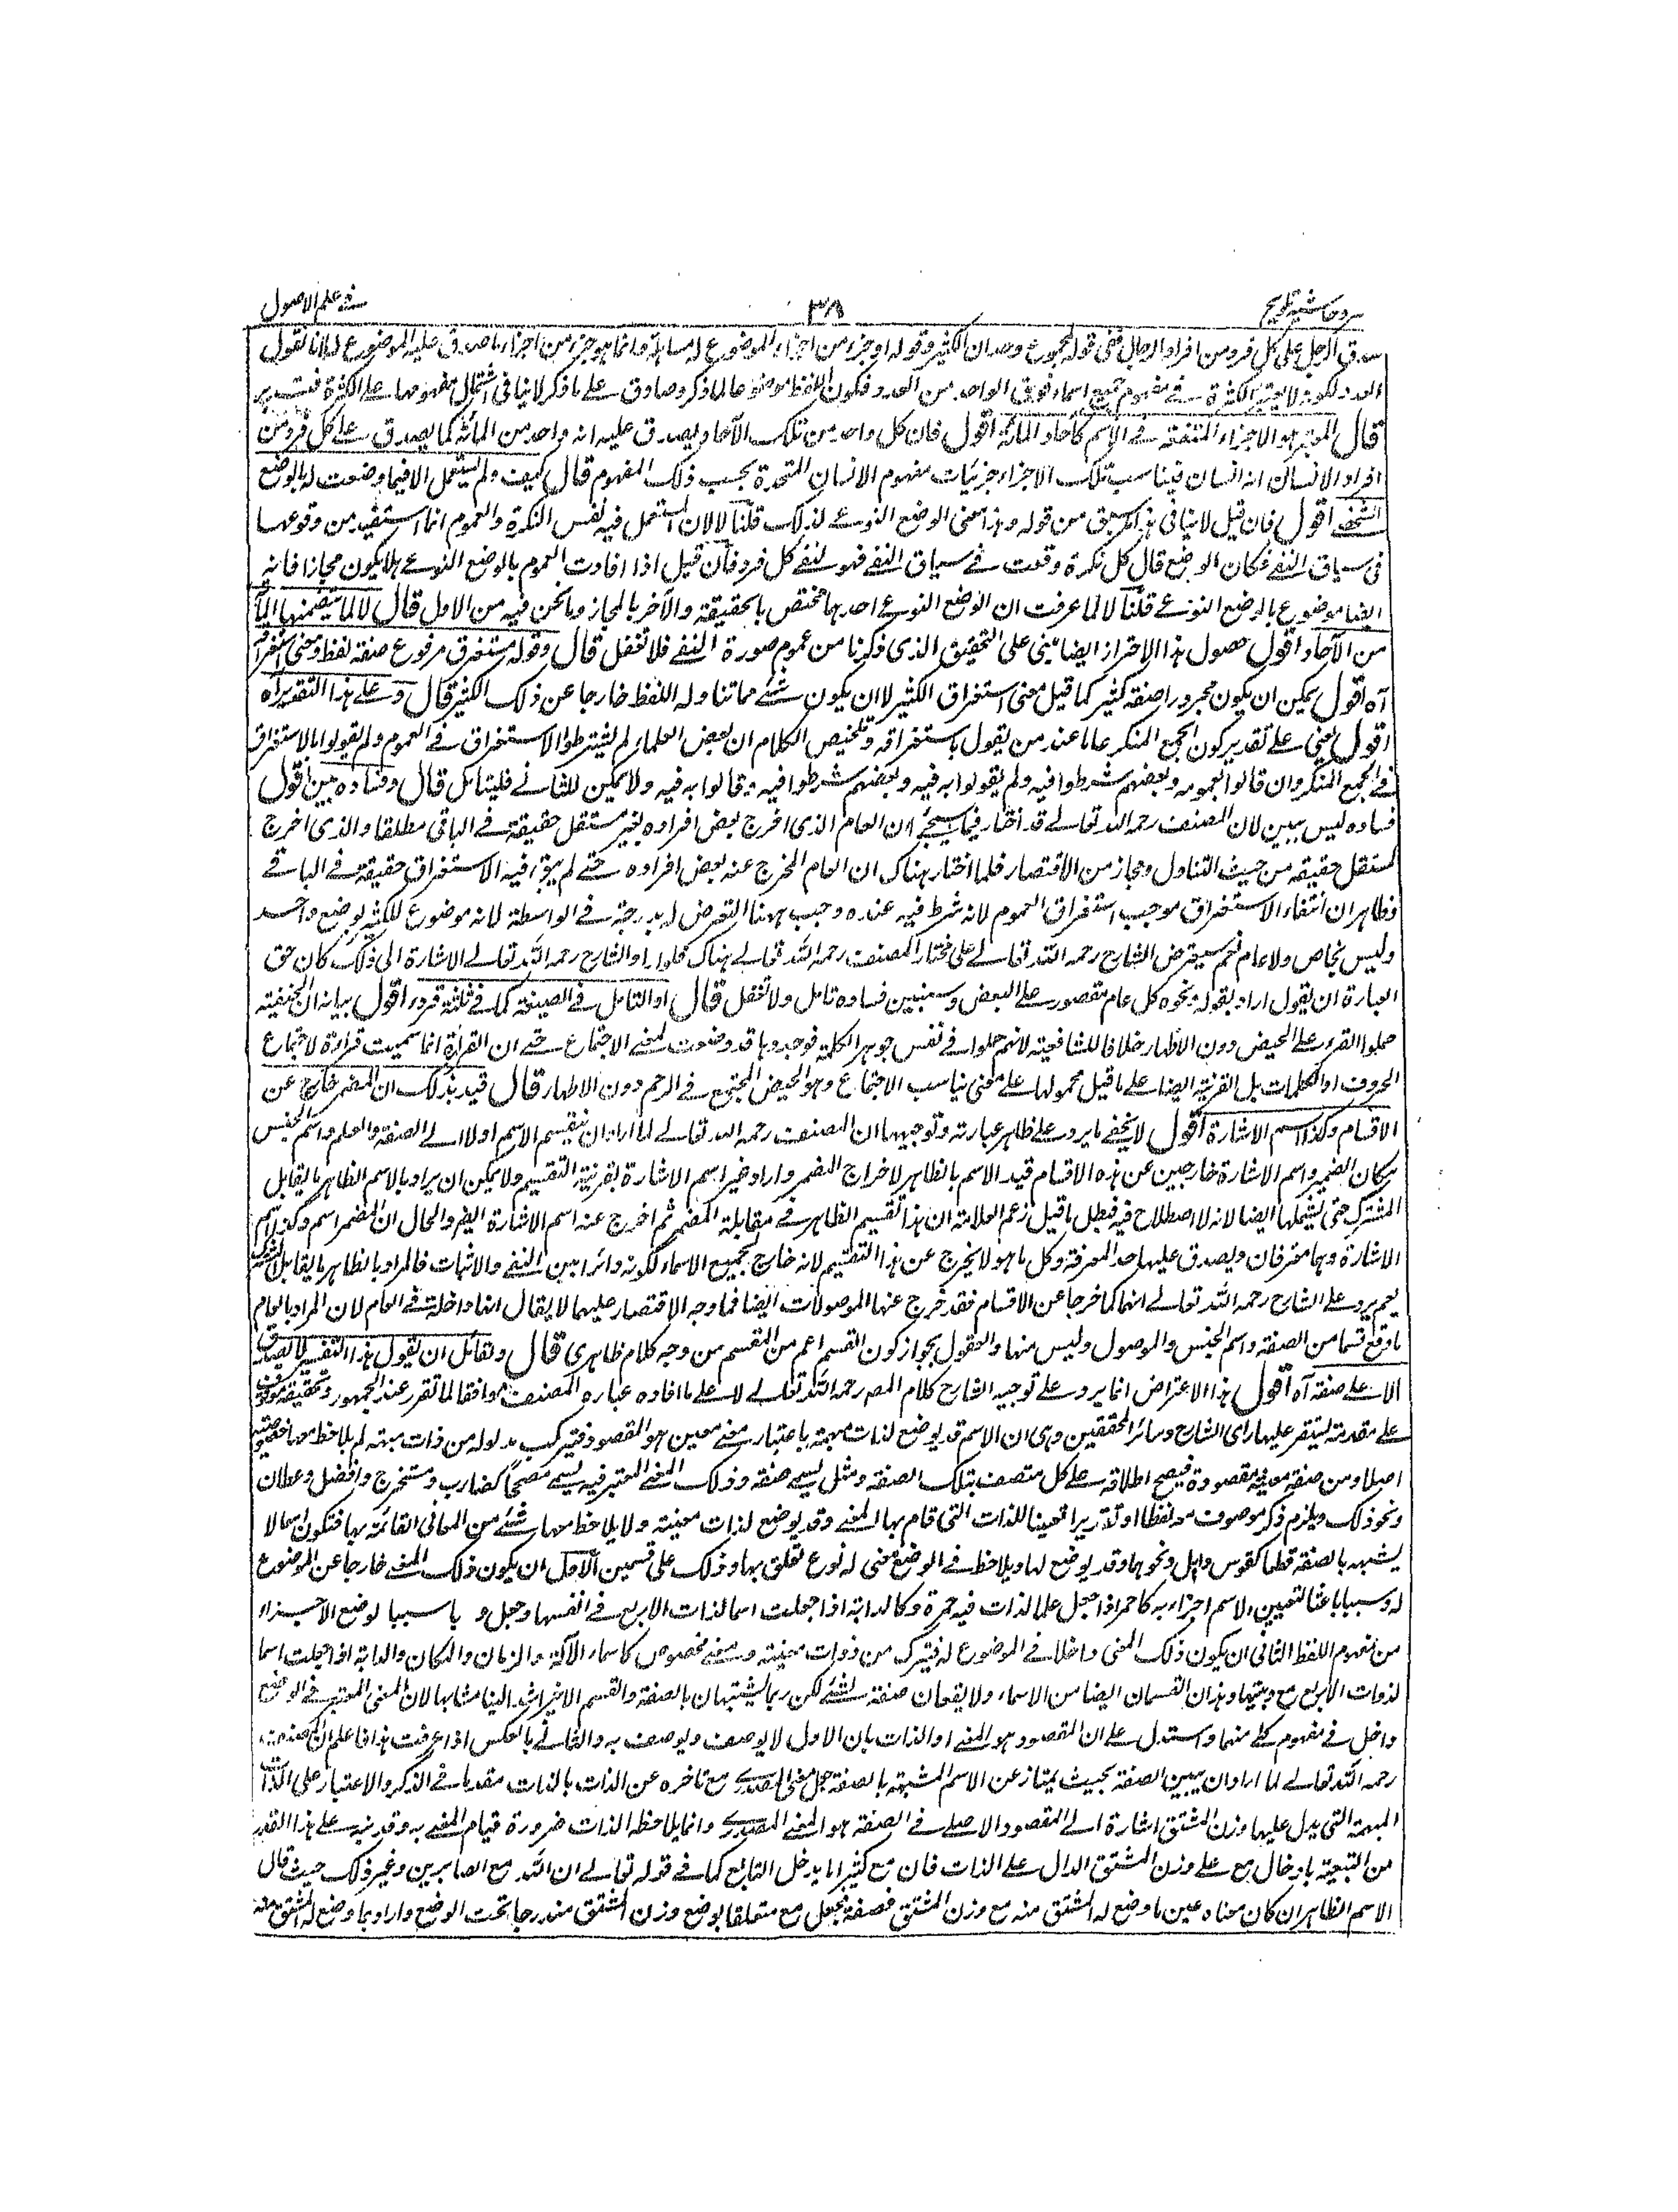 سر وحاشیہ تلویح ٣٨ فے علم الاصول
صدق الرجل علی کل فرد من افراد الرجال فمعنی قولہ المجموع وحدان الکثیر وقولہ او جزء من اجزاء الموضوع لہ مسامحة وانما ہو جزء من اجزاء ما صدق علیہ الموضوع لہ لانا نقول
العدد لکونہ لا یعتبر الکثرة فے مفہوم جمیع اسماء فوق الواحد من العدد فکون اللفظ موضوعا لما ذکر وصادق علے ما ذکر لا ینافی اشتمال مفہومہا علے الکثرة فتدبر
قال المعتبر ہو الاجزاء المتفقة فے الاسم کآحاد المائة اقول فان کل واحد من تلک الآحاد یصدق علیہ انہ واحد من المائة کما یصدق علے کل فرد من
افراد الانسان انہ انسان فیناسب تلک الاجزاء جزئیات مفہوم الانسان المتحدة بحسب ذلک المفہوم قال کیف ولم یستعمل الا فیما وضعت لہ بالوضع
الشخصے اقول فان قیل لا ینافی ہذا ما سبق من قولہ وہذا معنی الوضع النوعے لذلک قلنا لا لان المستعمل فیہ نفس النکرة والعموم انما استفید من وقوعہا
فی سیاق النفے فکان الوضع قال کل نکرة وقعت فے سیاق النفے فہو لنفے کل فرد فان قیل اذا افادت العموم بالوضع النوعے ہلا یکون مجازا فانہ
ایضا موضوع بالوضع النوعے قلنا لا لما عرفت ان الوضع النوعے احدہما مختص بالحقیقة والآخر بالمجاز وما نحن فیہ من الاول قال لا لما یتضمنہا الیآ
من الآحاد اقول حصول ہذا الاحتراز ایضا یبنی علی التحقیق الذی ذکرنا من عموم صورة النفے فلا تغفل قال وقولہ مستغرق مرفوع صفة لفظ ومعنی استغراقہ
آہ اقول یمکن ان یکون مجرورا صفة کثیر کما قیل معنی استغراق الکثیر لا ان یکون شئے مما تناولہ اللفظ خارجا عن ذلک الکثیر قال وعلے ہذا التقدیر آہ
اقول یعنی علے تقدیر کون الجمع المنکر عاما عند من یقول باستغراقہ وتلخیص الکلام ان بعض العلماء لم یشترطوا الاستغراق فے العموم ولم یقولوا بالاستغراق
فے الجمع المنکر وان قالوا بعمومہ وبعضہم شرطوا فیہ ولم یقولوا بہ فیہ وبعضہم شرطوا فیہ وقالوا بہ فیہ ولا یمکن للثانے فلیتامل قال وفسادہ بین اقول
فسادہ لیس ببین لان المصنف رحمہ اللہ تعالے قد اختار فیما سیجئے ان العام الذی اخرج بعض افرادہ بغیر مستقل حقیقة فے الباقی مطلقا والذی اخرج
بمستقل حقیقة من حیث التناول ومجاز من الاقتصار فلما اختار ہناک ان العام المخرج عنہ بعض افرادہ حتے لم یبق فیہ الاستغراق حقیقة فے الباقے
وظاہر ان انتفاء الاستغراق موجب استغراق العموم لانہ شرط فیہ عندہ وجب ہہنا التعرض لہ بدرجة فے الواسطة لانہ موضوع للکثیر بوضع واحد
ولیس بخاص ولا عام ثم سیعترض الشارح رحمہ اللہ تعالے علی مختار المصنف رحمہ اللہ تعالے ہناک فلو اراد الشارح رحمہ اللہ تعالے الاشارة الی ذلک کان حق
العبارة ان یقول اراد بقولہ ونحوہ کل عام مقصور علے البعض وسنبین فسادہ تامل ولا تغفل قال او التامل فے الصیغة کما فے ثلثة قروء اقول بیانہ ان الحنفیة
حملوا القرء علے الحیض دون الاطہار خلافا للشافعیة لانہم حملوا فے نفس جوہر الکلمة فوجدوہا قد وضعت لمعنے الاجتماع حتے ان القراءة انما سمیت قراءة لاجتماع
الحروف او الکلمات بل القرینة ایضا علے ما قیل محمولہا علے معنی یناسب الاجتماع وہو الحیض المجتمع فے الرحم دون الاطہار قال قید بذلک ان المضمر خارج عن
الاقسام وکذا اسم الاشارة اقول لا یخفے ما یرد علے ظاہر عبارتہ وتوجیہہا ان المصنف رحمہ اللہ تعالے لما اراد ان یقسم الاسم اولا الے الصفة والعلم واسم الجنس
وکان الضمیر واسم الاشارة خارجین عن ہذہ الاقسام قید الاسم بالظاہر لاخراج المضمر واراد غیر اسم الاشارة بقرینة التقسیم ولا یمکن ان یراد بالاسم الظاہر ما یقابل
المشترک حتی یشملہا ایضا لانہ لا اصطلاح فیہ فبطل ما قیل زعم العلامة ان ہذا تقسیم الظاہر فے مقابلة المضمر ثم اخرج عنہ اسم الاشارة ایضا والحال ان المضمر اسم وکذا اسم
الاشارة وہما معرفتان ویصدق علیہما حد المعرفة وکل ما ہو لا یخرج عن ہذا التقسیم لانہ خارج لجمیع الاسماء لکونہ دائرا بین النفے والاثبات فالمراد بالظاہر ما یقابل المشترک
نعم یرد علے الشارح رحمہ اللہ تعالے انہما کما خرجا عن الاقسام فقد خرج عنہا الموصولات ایضا فما وجہ الاقتصار علیہما لا یقال انہا داخلة فے العام لان المراد بالعام
ما وقع قسما من الصفة واسم الجنس والموصول ولیس منہا والقول بجواز کون القسیم اعم من المقسم من وجہ کلام ظاہری قال ولقائل ان یقول ہذا التفسیر لا یصدق
الا علے صفة آہ اقول ہذا الاعتراض انما یرد علے توجیہ الشارح کلام المص رحمہ اللہ تعالے لا علے ما افادہ عبارة المصنف موافقا لما تقرر عند الجمہور وتحقیقہ موقوف
علے مقدمة یستقر علیہا رای الشارح وسائر المحققین وہی ان الاسم قد یوضع لذات مبہمة باعتبار معنے معین ہو المقصود فترکب مدلولہ من ذات مبہمة لم یلاحظ معہا خصوصیة
اصلا ومن صفة معینة مقصودة فیصح اطلاقہ علے کل متصف بتلک الصفة ومثل یسمے صفة وذلک المعنے المعتبر فیہ یسمے مصححا کضارب ومستخرج وافضل وعطان
ونحو ذلک ویلزم ذکر موصوف معہ لفظا او تقدیرا تعیینا للذات التی قام بہا المعنے وقد یوضع لذات معینة ولا یلاحظ معہا شئے من المعانی القائمة بہا فتکون اسما لا
یشتبہ بالصفة قطعا کفرس وابل ونحوہما وقد یوضع لہا ویلاحظ فے الوضع معنی لہ نوع تعلق بہا وذلک علی قسمین الاول ان یکون ذلک المعنے خارجا عن الموضوع
لہ وسببا باعثا لتعیین الاسم اجزاء بہ کاحمر اذا جعل علما لذات فیہ حمرة وکالدابة اذا جعلت اسما لذات الاربع فے انفسہا وجعل و با سببا لوضع الاجزاء
من مفہوم اللفظ الثانی ان یکون ذلک المعنی داخلا فے الموضوع لہ فترکب من ذوات معینة ومعنے مخصوص کاسماء الآلة والزمان والمکان والدابة اذا جعلت اسما
لذوات الاربع مع دبیبہا وہذان القسمان ایضا من الاسماء ولا یقعان صفة لشئے لکن ربما یشتبہان بالصفة والقسم الاخیر اشد التباسا بہا لان المعنی المعتبر فے الوضع
داخل فے مفہوم کل منہما واستدل علے ان المقصود ہو المعنے او الذات بان الاول لا یوصف ویوصف بہ والثانے بالعکس اذا عرفت ہذا فاعلم ان المصنف
رحمہ اللہ تعالے لما اراد ان یبین الصفة بحیث یمتاز عن الاسم المشتبہ بالصفة جعل معنی المصدرے مع تاخرہ عن الذات بالذات مقدما فے الذکر والاعتبار علی الذات
المبہمة التی یدل علیہا وزن المشتق اشارة الے المقصود الاصلے فے الصفة ہو المعنے المصدرے وانما یلاحظ الذات ضرورة قیام المعنے بہ وقد نبہ علے ہذا القدر
من التبعیة بادخال مع علے وزن المشتق الدال علے الذات فان مع کثیرا ما یدخل التابع کما فے قولہ تعالے ان اللہ مع الصابرین وغیر ذلک حیث قال
الاسم الظاہر ان کان معناہ عین ما وضع لہ المشتق منہ مع وزن المشتق فصفة فجعل مع متعلقا بوضع وزن المشتق مندرجا تحت الوضع واراد بما وضع لہ المشتق منہ